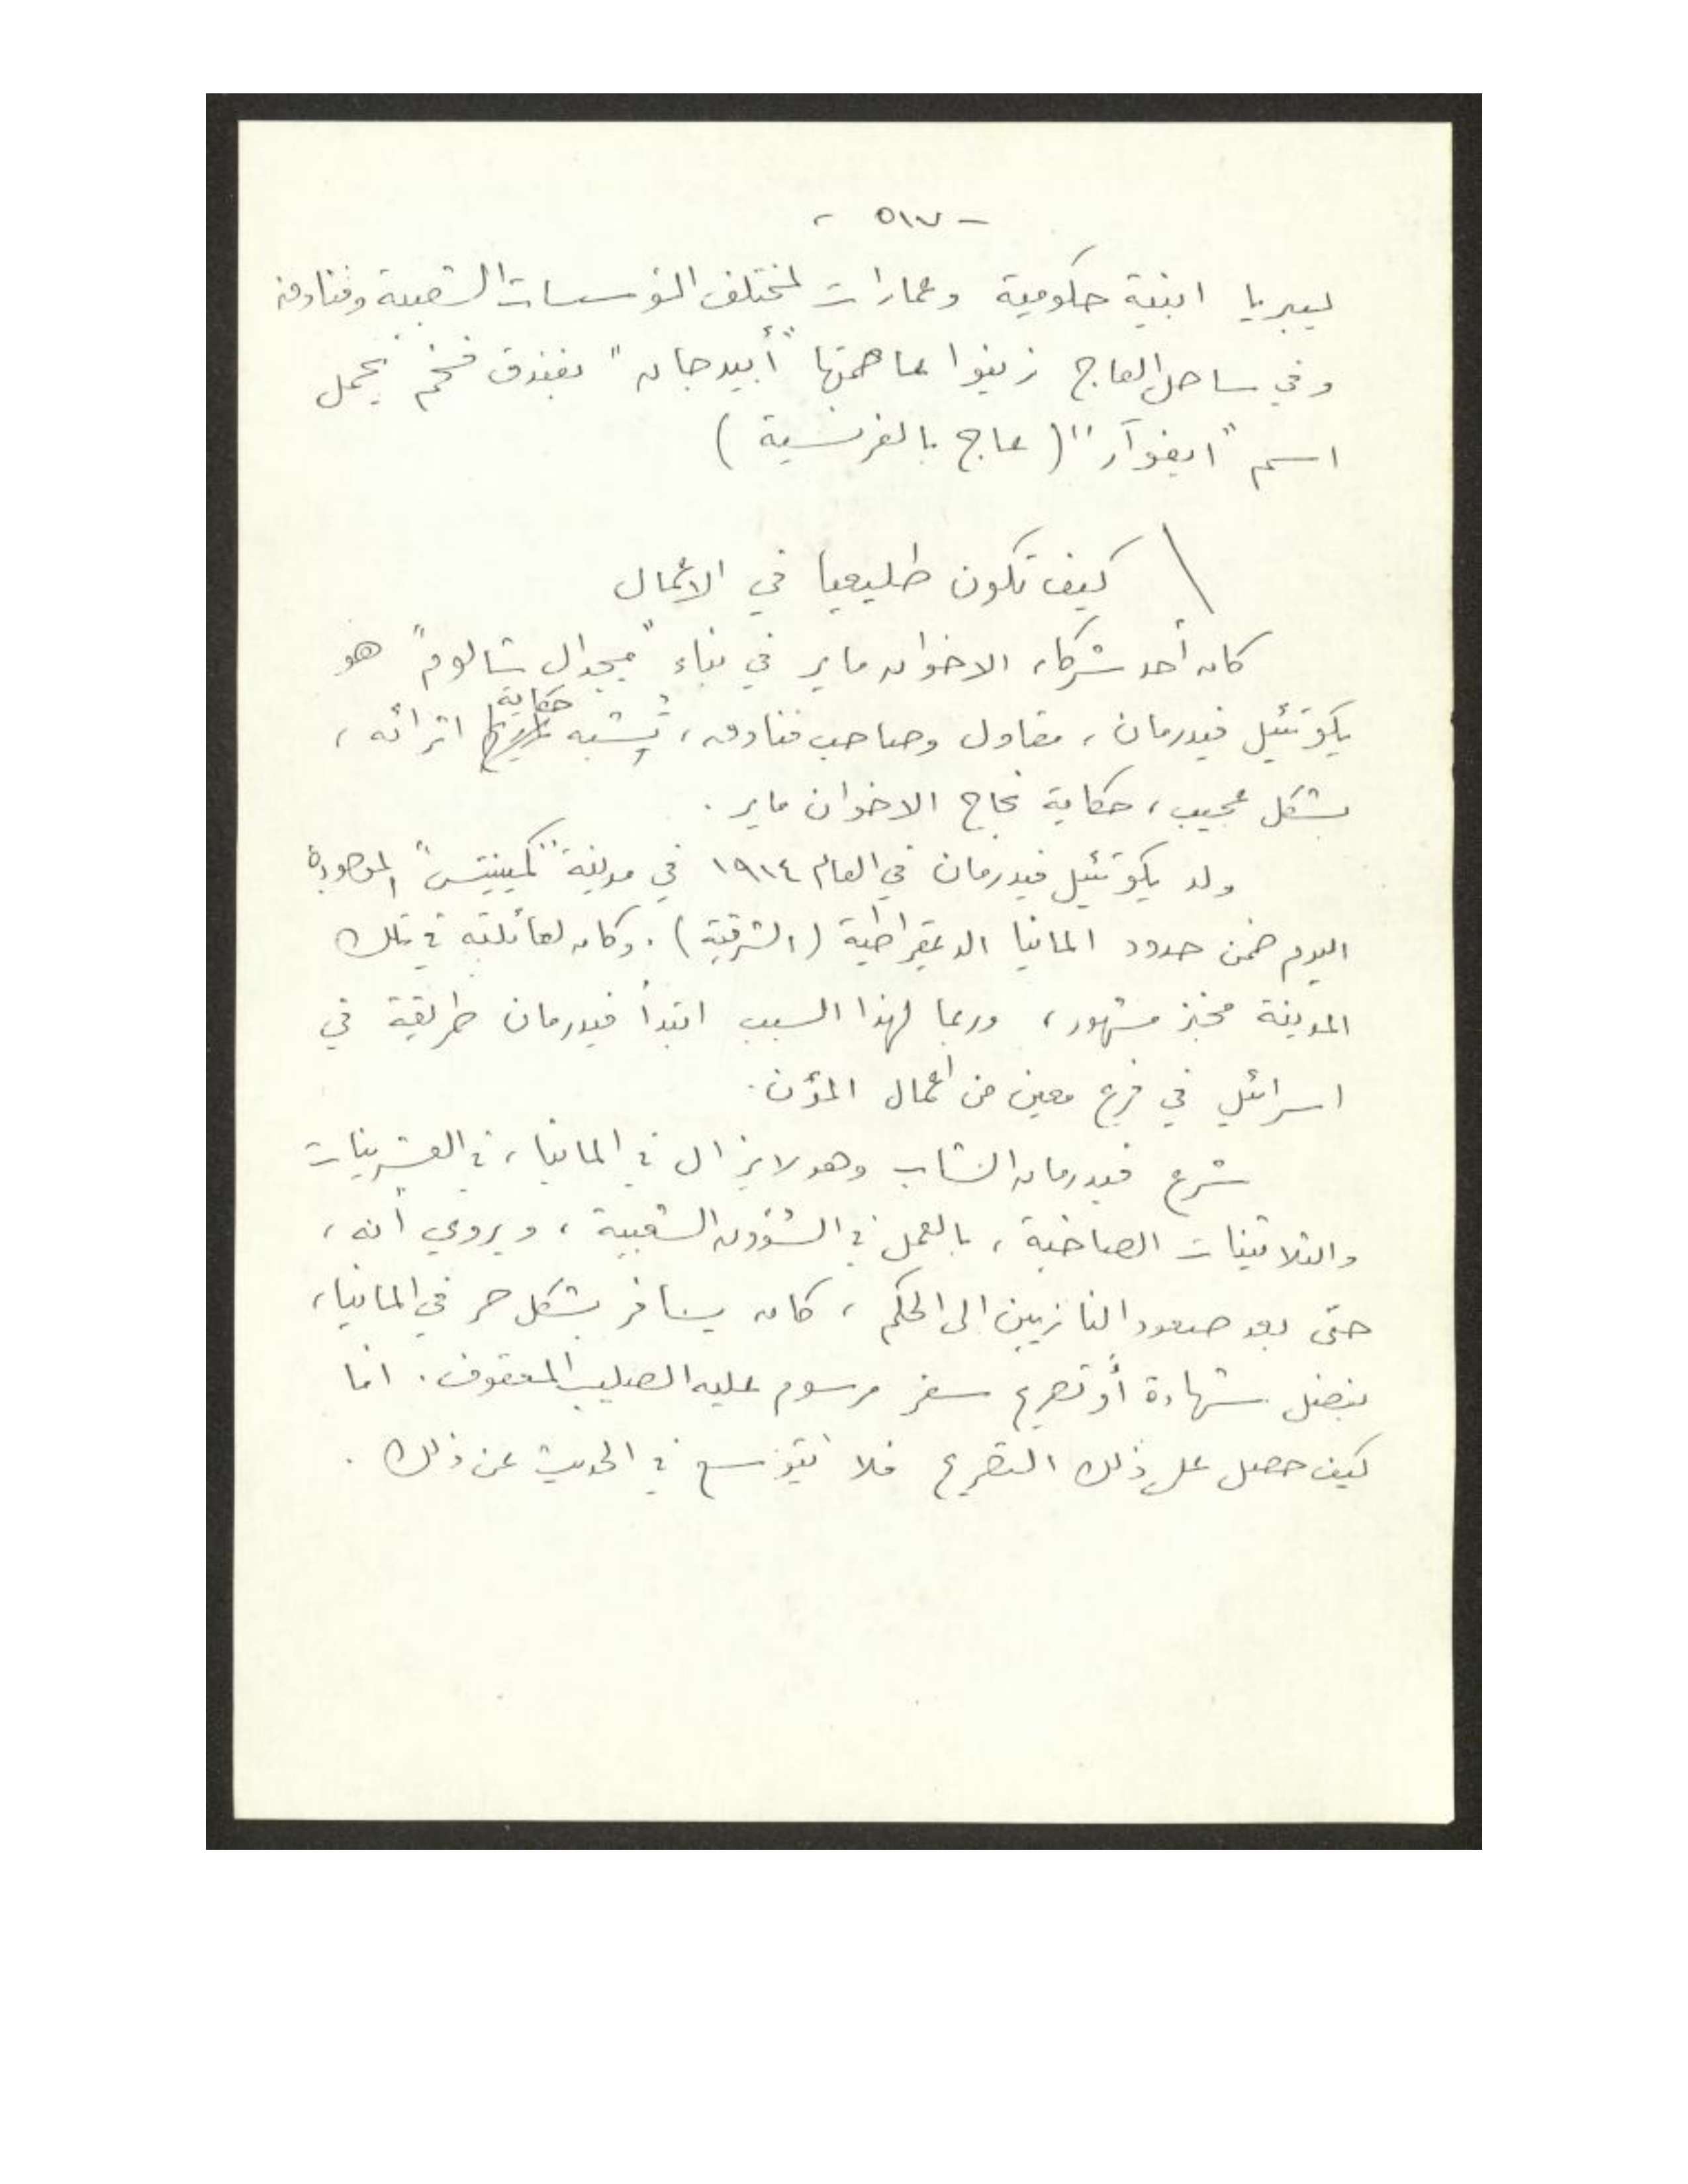 - ٥١٧ -
ليبريا ابنية حكومية وعمارات لمختلف المؤسسات الشعبية وفنادق
وفي ساحل العاج زينوا عاصمتها "أبيدجان" بفندق فخم يحمل
اسم "ايفوآر" (عاج بالفرنسية)
كيف تكون طليعيا في الاعمال
كان أحد شركاء الاخوان ماير في بناء "مجدال شالوم" هو
يكوتئيل فيدرمان، مقاول وصاحب فنادق، تشبه حكاية اثرائه،
بشكل عجيب، حكاية نجاح الاخوان ماير.
ولد يكوتئيل فيدرمان في العام ١٩١٤ في مدينة "كمينيتس" الموجودة
اليوم ضمن حدود المانيا الديمقراطية (الشرقية). وكان لعائلته في تلك
المدينة مخبز مشهور، وربما لهذا السبب ابتدأ فيدرمان طريقة في
اسرائيل في فرع معين من اعمال المؤن.
شرع فيدرمان الشاب وهو لايزال في المانيا، في العشرينات
والثلاثينات الصاخبة، بالعمل في الشؤون الشعبية، ويروي أنه،
حتى بعد صعود النازيين الى الحكم، كان يسافر بشكل حر في المانيا،
بفضل شهادة أو تصريح سفر مرسوم عليه الصليب المعقوف. اما
كيف حصل على ذلك التصريح فلا يتوسع في الحديث عن ذلك.